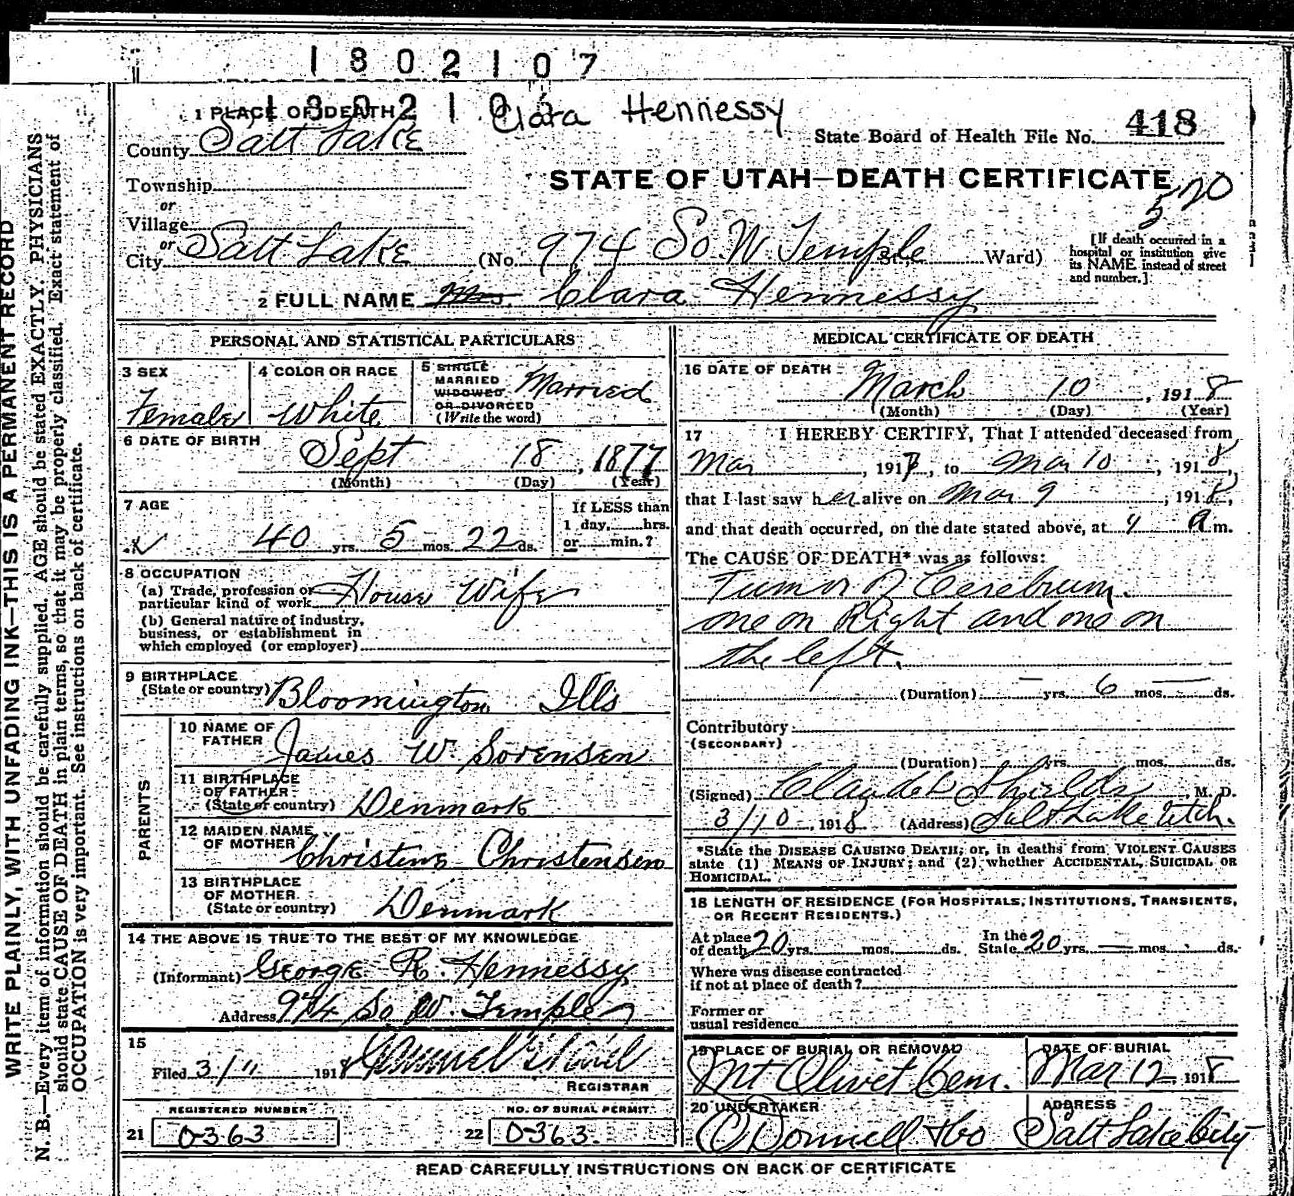 1802107
1802107
Clara Hennessy
1 PLACE OF DEATH
State Board of Health File No. 418
County Salt Lake
STATE OF UTAH—DEATH CERTIFICATE
520
Township
or
Village
or
City Salt Lake (No. 974 So. W. Temple St., Ward)
[If death occurred in a
hospital or institution give
its NAME instead of street
and number.]
2 FULL NAME Mrs Clara Hennessy
PERSONAL AND STATISTICAL PARTICULARS
3 SEX
Female
4 COLOR OR RACE
White
5 SINGLE
MARRIED
WIDOWED
OR DIVORCED
(Write the word)
Married
6 DATE OF BIRTH
Sept 18, 1877
(Month) (Day) (Year)
7 AGE
40 yrs. 5 mos. 22 ds.
If LESS than
1 day, hrs.
or min.?
8 OCCUPATION
(a) Trade, profession or
particular kind of work House Wife
(b) General nature of industry,
business, or establishment in
which employed (or employer)
9 BIRTHPLACE
(State or country) Bloomington Ills
PARENTS
10 NAME OF
FATHER James W. Sorensen
11 BIRTHPLACE
OF FATHER
(State or country) Denmark
12 MAIDEN NAME
OF MOTHER Christens Christensen
13 BIRTHPLACE
OF MOTHER
(State or country) Denmark
14 THE ABOVE IS TRUE TO THE BEST OF MY KNOWLEDGE
(Informant) George R. Hennessy
Address 974 So W. Temple
15
Filed 3/11 1918
REGISTRAR
REGISTERED NUMBER
21 0363
NO. OF BURIAL PERMIT
22 0363
MEDICAL CERTIFICATE OF DEATH
16 DATE OF DEATH
March 10, 1918
(Month) (Day) (Year)
17 I HEREBY CERTIFY, That I attended deceased from
Mar, 1917, to Mar 10, 1918,
that I last saw her alive on Mar 9, 1918,
and that death occurred, on the date stated above, at 4 a m.
The CAUSE OF DEATH* was as follows:
Tumor of Cerebrum.
one on Right and one on
the left.
(Duration) — yrs. 6 mos. — ds.
Contributory
(SECONDARY)
(Duration) yrs. mos. ds.
(Signed) Claude L Shields, M. D.
3/10, 1918 (Address) Salt Lake Utah.
*State the DISEASE CAUSING DEATH, or, in deaths from VIOLENT CAUSES
state (1) MEANS OF INJURY; and (2) whether ACCIDENTAL, SUICIDAL OR
HOMICIDAL.
18 LENGTH OF RESIDENCE (FOR HOSPITALS, INSTITUTIONS, TRANSIENTS,
OR RECENT RESIDENTS.)
At place
of death 20 yrs. mos. ds.
In the
State 20 yrs. — mos. ds.
Where was disease contracted
if not at place of death?
Former or
usual residence
19 PLACE OF BURIAL OR REMOVAL
Mt Olivet Cem.
DATE OF BURIAL
Mar 12 1918
20 UNDERTAKER
O'Donnell & Co
ADDRESS
Salt Lake City
READ CAREFULLY INSTRUCTIONS ON BACK OF CERTIFICATE
WRITE PLAINLY, WITH UNFADING INK—THIS IS A PERMANENT RECORD
N. B.—Every item of information should be carefully supplied. AGE should be stated EXACTLY. PHYSICIANS
should state CAUSE OF DEATH in plain terms, so that it may be properly classified. Exact statement of
OCCUPATION is very important. See instructions on back of certificate.